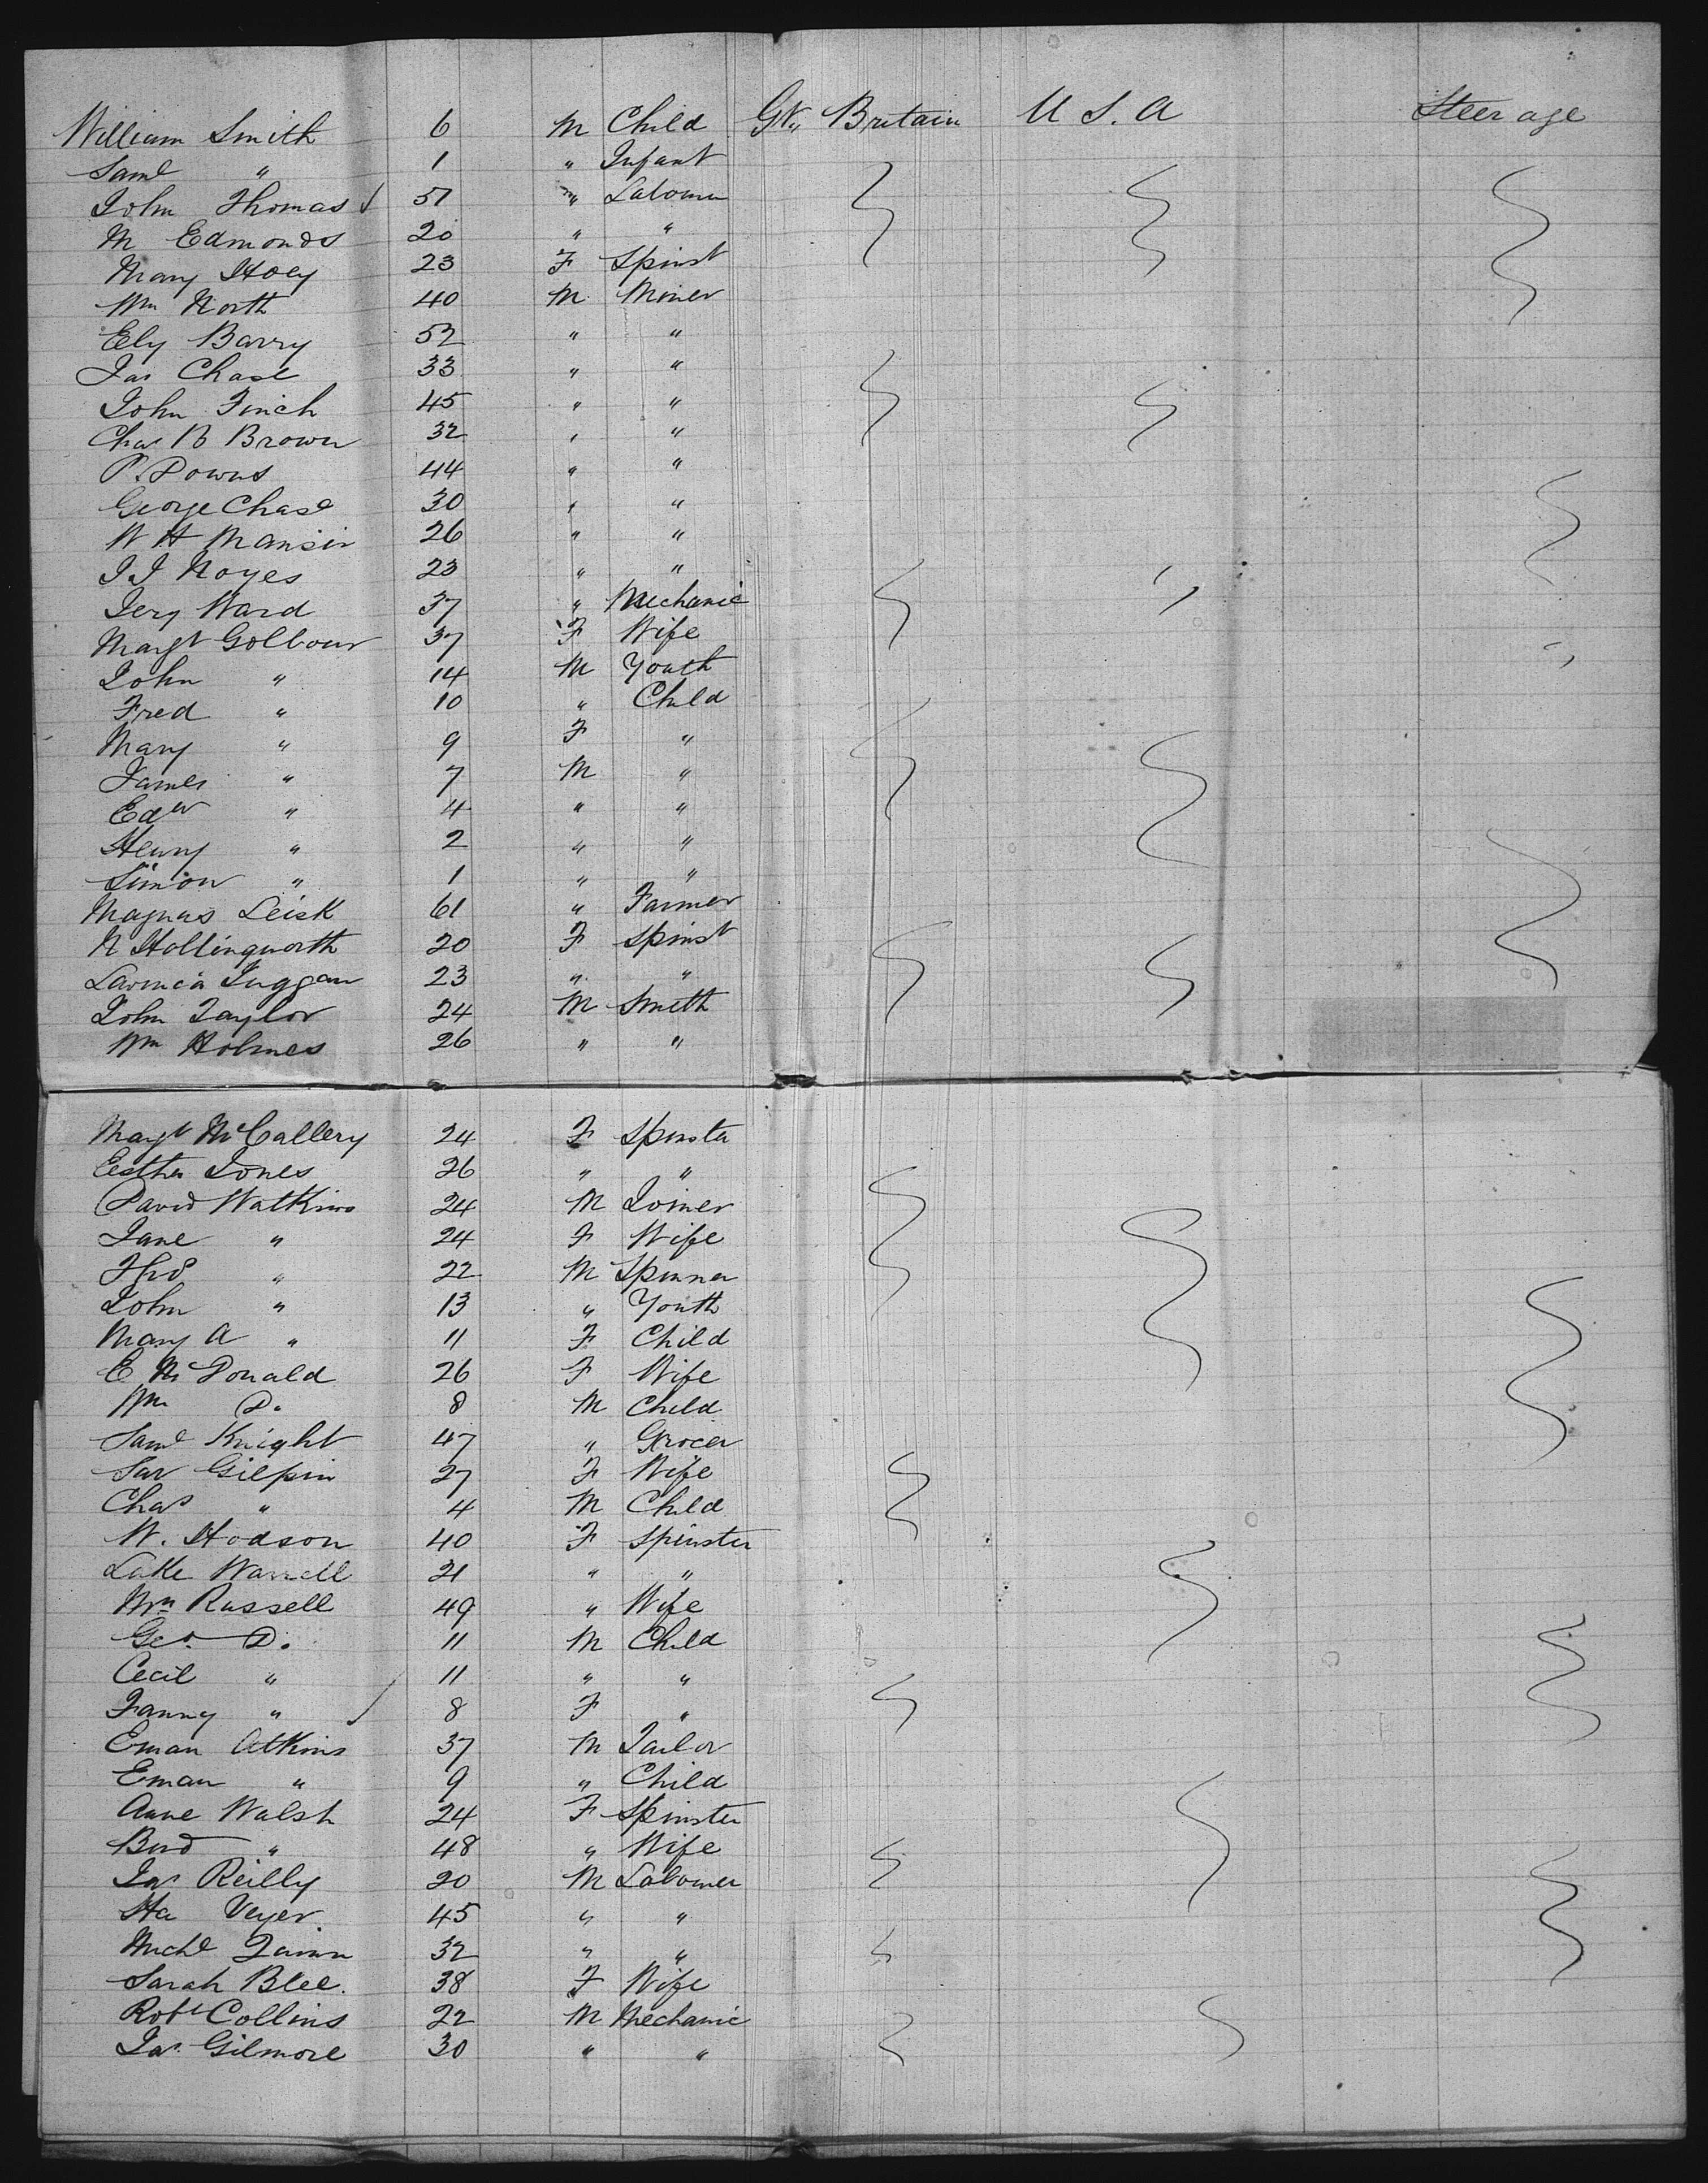 William Smith 6 M Child Gt. Britain U S. A Steerage
Saml " 1 " Infant
John Thomas 51 " Labourer
M Edmonds 20 " "
Mary Hoey 23 F Spinst
Wm North 40 M Miner
Ely Barry 52 " "
Jas Chase 33 " "
John Finch 45 " "
Chas B Brown 32 " "
P. Downs 44 " "
George Chase 30 " "
W H Mansir 26 " "
J J Noyes 23 " "
Jery Ward 37 " Mechanic
Margt Golbour 37 F Wife
John " 14 M Youth
Fred " 10 " Child
Mary " 9 F "
James " 7 M "
Edw " 4 " "
Henry " 2 " "
Simon " 1 " "
Magnas Leisk 61 " Farmer
N Hollingworth 20 F Spinst
Lavinia 23 " "
John Taylor 24 M Smith
Wm Holmes 26 " "
Margt McCallery 24 F Spinster
Eesther Jones 26 " "
David Watkins 24 M Joiner
Jane " 24 F Wife
Thos " 22 M Spinner
John " 13 " Youth
Mary A " 11 F Child
E McDonald 26 F Wife
Wm D. 8 M Child
Saml Knight 47 " Grocer
Sar Gilpin 27 F Wife
Chas " 4 M Child
W. Hodson 40 F Spinster
Lake 21 " "
Mrs Russell 49 " Wife
Geo. D. 11 M Child
Cecil " 11 " "
Fanny " 8 F "
Eman Atkins 37 M Tailor
Eman " 9 " Child
Anne Walsh 24 F Spinster
Brid " 48 " Wife
Jas Reilly 20 M Labourer
Veyer 45 " "
Michl Quinn 32 " "
Sarah Blee. 38 F Wife
Robt Collins 22 M Mechanic
Jas. Gilmore 30 " "